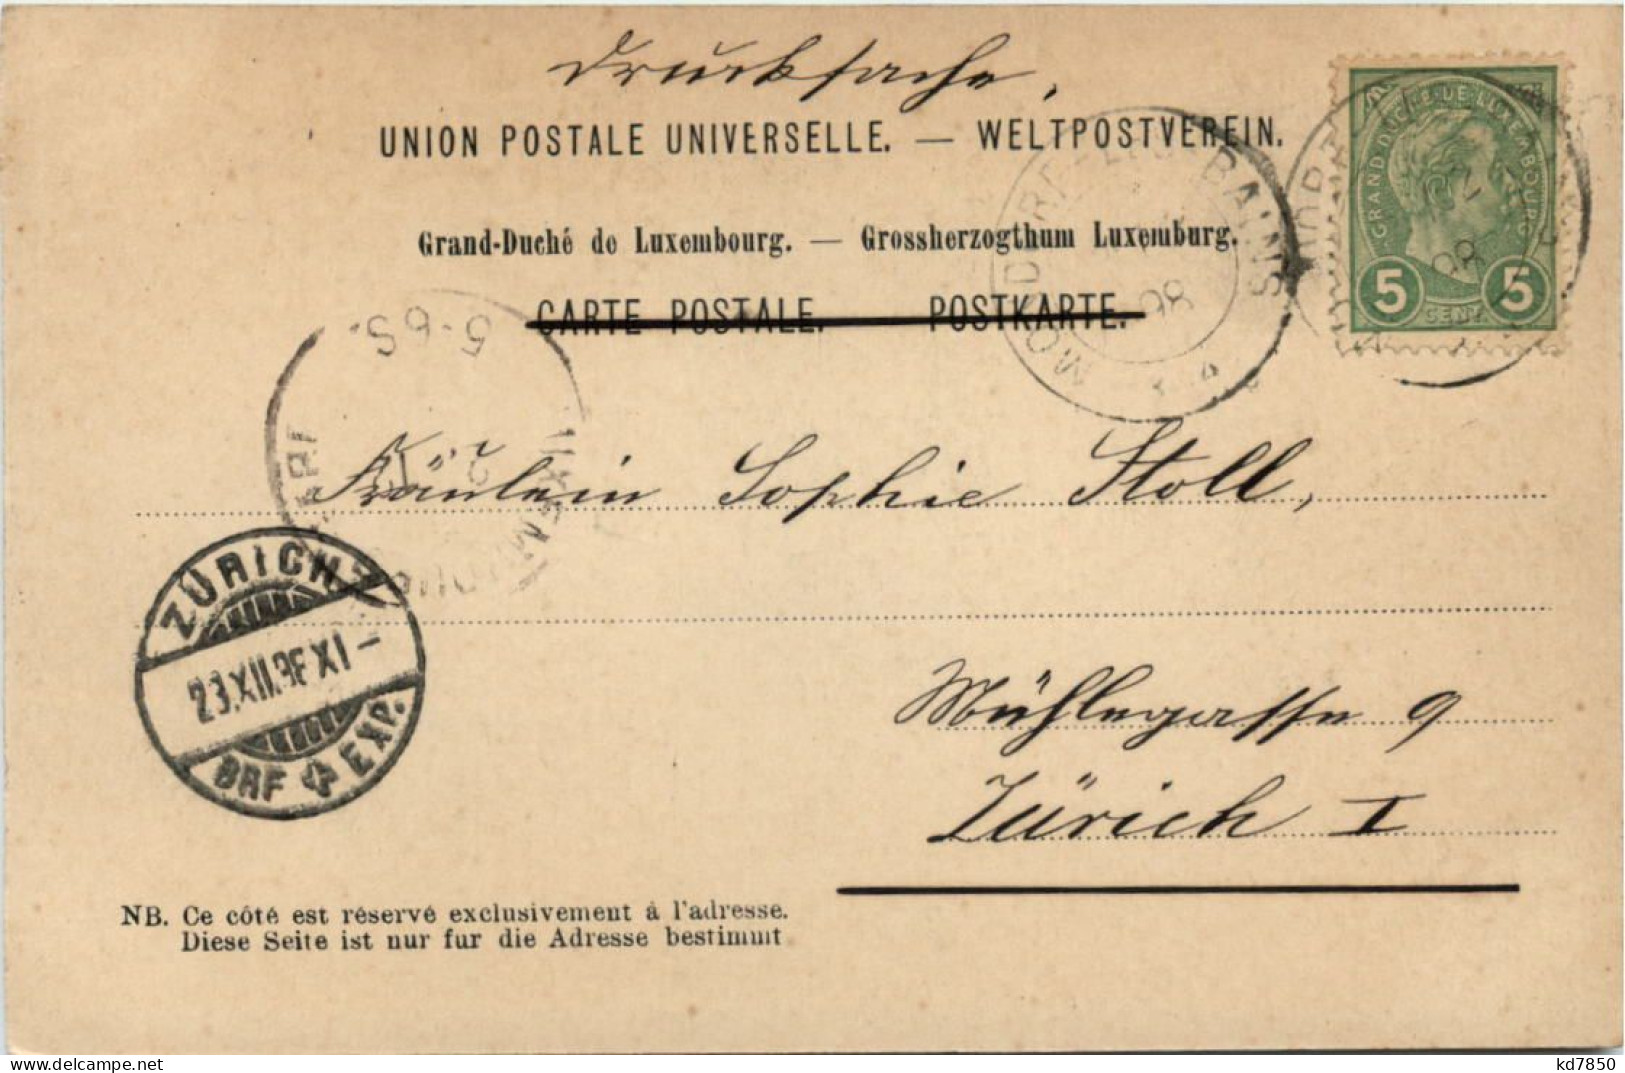 Drucksache.
UNION POSTALE UNIVERSELLE. — WELTPOSTVEREIN.
Grand-Duché de Luxembourg. — Grossherzogthum Luxemburg.
CARTE POSTALE. POSTKARTE.
GRAND DUCHÉ DE LUXEMBOURG
5 5
BAINS
98
98
5-6S.
Fräulein Sophie Stoll,
ZÜRICH
23.XII.98 XI-
BRF EXP.
Mühlegasse 9
Zürich I
NB. Ce côté est réservé exclusivement à l'adresse.
Diese Seite ist nur fur die Adresse bestimmt
www.delcampe.net
kd7850